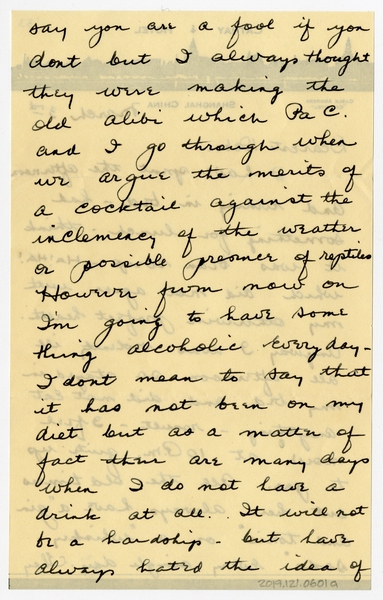 say you are a fool if you
dont but I always thought
they were making the
old alibi which Pa C.
and I go through when
we argue the merits of
a cocktail against the
inclemency of the weather
or possible presence of reptiles
However from now on
I'm going to have some
thing alcoholic everyday -
I dont mean to say that
it has not been on my
diet but as a matter of
fact there are many days
when I do not have a
drink at all. It will not
be a hardship - but have
always hated the idea of
2019.121.0601a